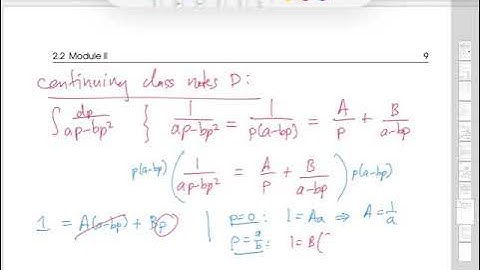 2.2 Module II 9
continuing class notes D:
∫ dp/(ap-bp²) } 1/(ap-bp²) = 1/(p(a-bp)) = A/p + B/(a-bp)
p(a-bp) ( 1/(ap-bp²) = A/p + B/(a-bp) ) p(a-bp)
1 = A(a-bp) + Bp | p=0: 1=Aa ⇒ A=1/a
p=a/b: 1=B(